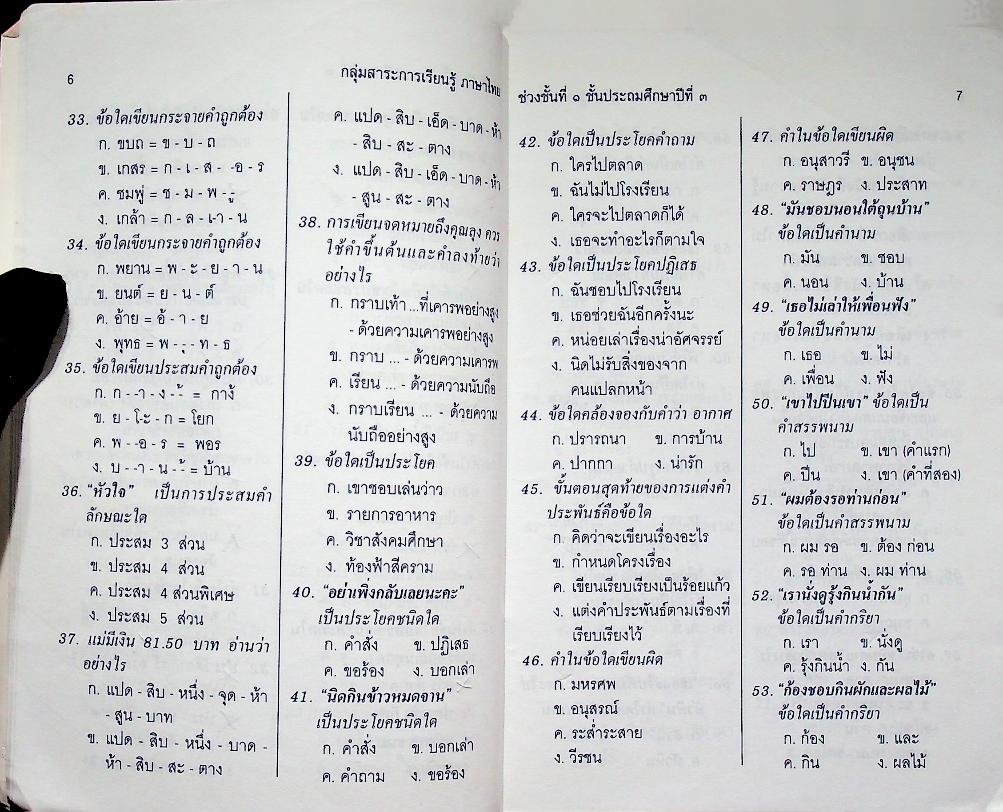 6
กลุ่มสาระการเรียนรู้ ภาษาไทย
33. ข้อใดเขียนกระจายคำถูกต้อง
ก. ขบถ = ข - บ - ถ
ข. เกสร = ก - เ - ส - -อ - ร
ค. ชมพู่ = ช - ม - พ - -ู่
ง. เกล้า = ก - ล - เ-า - น
34. ข้อใดเขียนกระจายคำถูกต้อง
ก. พยาน = พ - ะ - ย - า - น
ข. ยนต์ = ย - น - ต์
ค. อ้าย = อ้ - า - ย
ง. พุทธ = พ - -ุ - ท - ธ
35. ข้อใดเขียนประสมคำถูกต้อง
ก. ก - -า - ง - -้ = กาง้
ข. ย - โ-ะ - ก = โยก
ค. พ - -อ - ร = พอร
ง. บ - -า - น - -้ = บ้าน
36. “หัวใจ” เป็นการประสมคำ
ลักษณะใด
ก. ประสม 3 ส่วน
ข. ประสม 4 ส่วน
ค. ประสม 4 ส่วนพิเศษ
ง. ประสม 5 ส่วน
37. แม่มีเงิน 81.50 บาท อ่านว่า
อย่างไร
ก. แปด - สิบ - หนึ่ง - จุด - ห้า
- สูน - บาท
ข. แปด - สิบ - หนึ่ง - บาด -
ห้า - สิบ - สะ - ตาง
ค. แปด - สิบ - เอ็ด - บาด - ห้า
- สิบ - สะ - ตาง
ง. แปด - สิบ - เอ็ด - บาด - ห้า
- สูน - สะ - ตาง
38. การเขียนจดหมายถึงคุณลุง ควร
ใช้คำขึ้นต้นและคำลงท้ายว่า
อย่างไร
ก. กราบเท้า ...ที่เคารพอย่างสูง
- ด้วยความเคารพอย่างสูง
ข. กราบ ... - ด้วยความเคารพ
ค. เรียน ... - ด้วยความนับถือ
ง. กราบเรียน ... - ด้วยความ
นับถืออย่างสูง
39. ข้อใดเป็นประโยค
ก. เขาชอบเล่นว่าว
ข. รายการอาหาร
ค. วิชาสังคมศึกษา
ง. ท้องฟ้าสีคราม
40. “อย่าเพิ่งกลับเลยนะคะ”
เป็นประโยคชนิดใด
ก. คำสั่ง ข. ปฏิเสธ
ค. ขอร้อง ง. บอกเล่า
41. “นิดกินข้าวหมดจาน”
เป็นประโยคชนิดใด
ก. คำสั่ง ข. บอกเล่า
ค. คำถาม ง. ขอร้อง
ช่วงชั้นที่ ๑ ชั้นประถมศึกษาปีที่ ๓
7
42. ข้อใดเป็นประโยคคำถาม
ก. ใครไปตลาด
ข. ฉันไม่ไปโรงเรียน
ค. ใครจะไปตลาดก็ได้
ง. เธอจะทำอะไรก็ตามใจ
43. ข้อใดเป็นประโยคปฏิเสธ
ก. ฉันชอบไปโรงเรียน
ข. เธอช่วยฉันอีกครั้งนะ
ค. หน่อยเล่าเรื่องน่าอัศจรรย์
ง. นิดไม่รับสิ่งของจาก
คนแปลกหน้า
44. ข้อใดคล้องจองกับคำว่า อากาศ
ก. ปรารถนา ข. การบ้าน
ค. ปากกา ง. น่ารัก
45. ขั้นตอนสุดท้ายของการแต่งคำ
ประพันธ์คือข้อใด
ก. คิดว่าจะเขียนเรื่องอะไร
ข. กำหนดโครงเรื่อง
ค. เขียนเรียบเรียงเป็นร้อยแก้ว
ง. แต่งคำประพันธ์ตามเรื่องที่
เรียบเรียงไว้
46. คำในข้อใดเขียนผิด
ก. มหรศพ
ข. อนุสรณ์
ค. ระส่ำระสาย
ง. วีรชน
47. คำในข้อใดเขียนผิด
ก. อนุสาวรี ข. อนุชน
ค. ราษฎร ง. ประสาท
48. “มันชอบนอนใต้ถุนบ้าน”
ข้อใดเป็นคำนาม
ก. มัน ข. ชอบ
ค. นอน ง. บ้าน
49. “เธอไม่เล่าให้เพื่อนฟัง”
ข้อใดเป็นคำนาม
ก. เธอ ข. ไม่
ค. เพื่อน ง. ฟัง
50. “เขาไปปีนเขา” ข้อใดเป็น
คำสรรพนาม
ก. ไป ข. เขา (คำแรก)
ค. ปีน ง. เขา (คำที่สอง)
51. “ผมต้องรอท่านก่อน”
ข้อใดเป็นคำสรรพนาม
ก. ผม รอ ข. ต้อง ก่อน
ค. รอ ท่าน ง. ผม ท่าน
52. “เรานั่งดูรุ้งกินน้ำกัน”
ข้อใดเป็นคำกริยา
ก. เรา ข. นั่งดู
ค. รุ้งกินน้ำ ง. กัน
53. “ก้องชอบกินผักและผลไม้”
ข้อใดเป็นคำกริยา
ก. ก้อง ข. และ
ค. กิน ง. ผลไม้